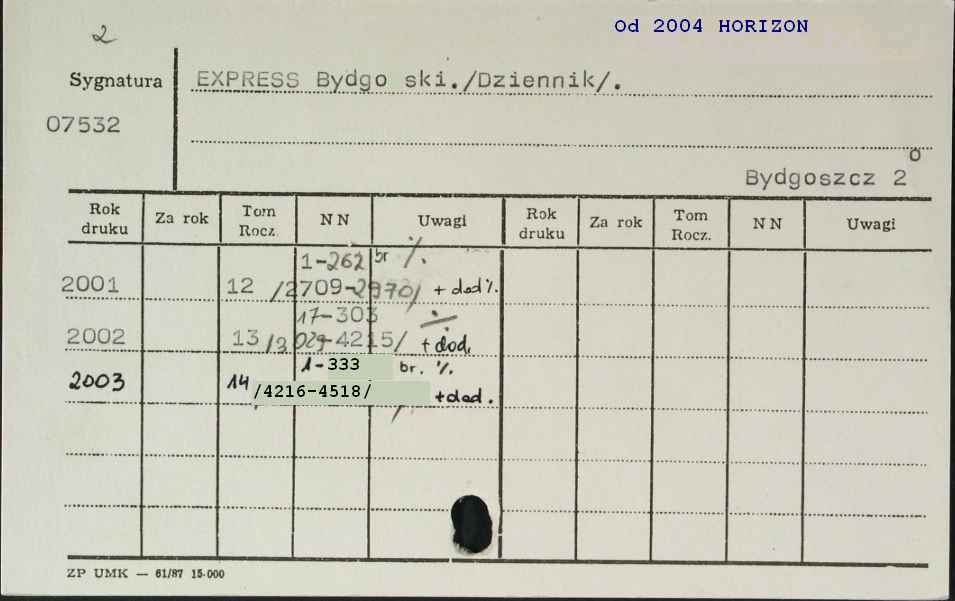 2
Od 2004 HORIZON
Sygnatura
EXPRESS Bydgo ski./Dziennik/.
07532
Bydgoszcz 2
o
Rok druku Za rok Tom Rocz. N N Uwagi Rok druku Za rok Tom Rocz. N N Uwagi
1-262 br %.
2001 12 /2709-2970/ + dod %.
17-303 ÷
2002 13 /3029-4215/ + dod.
1-333 br. %.
2003 14 /4216-4518/ +dod.
ZP UMK — 61/87 15-000